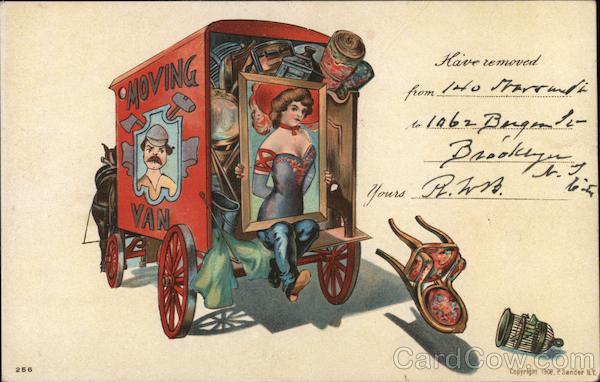 MOVING
VAN
Have removed
from 140
to 1062 Bergen St
Brooklyn
N.Y.
Yours R.W.B.
256
Copyright 190 P. Sander N.Y.
CardCow.com